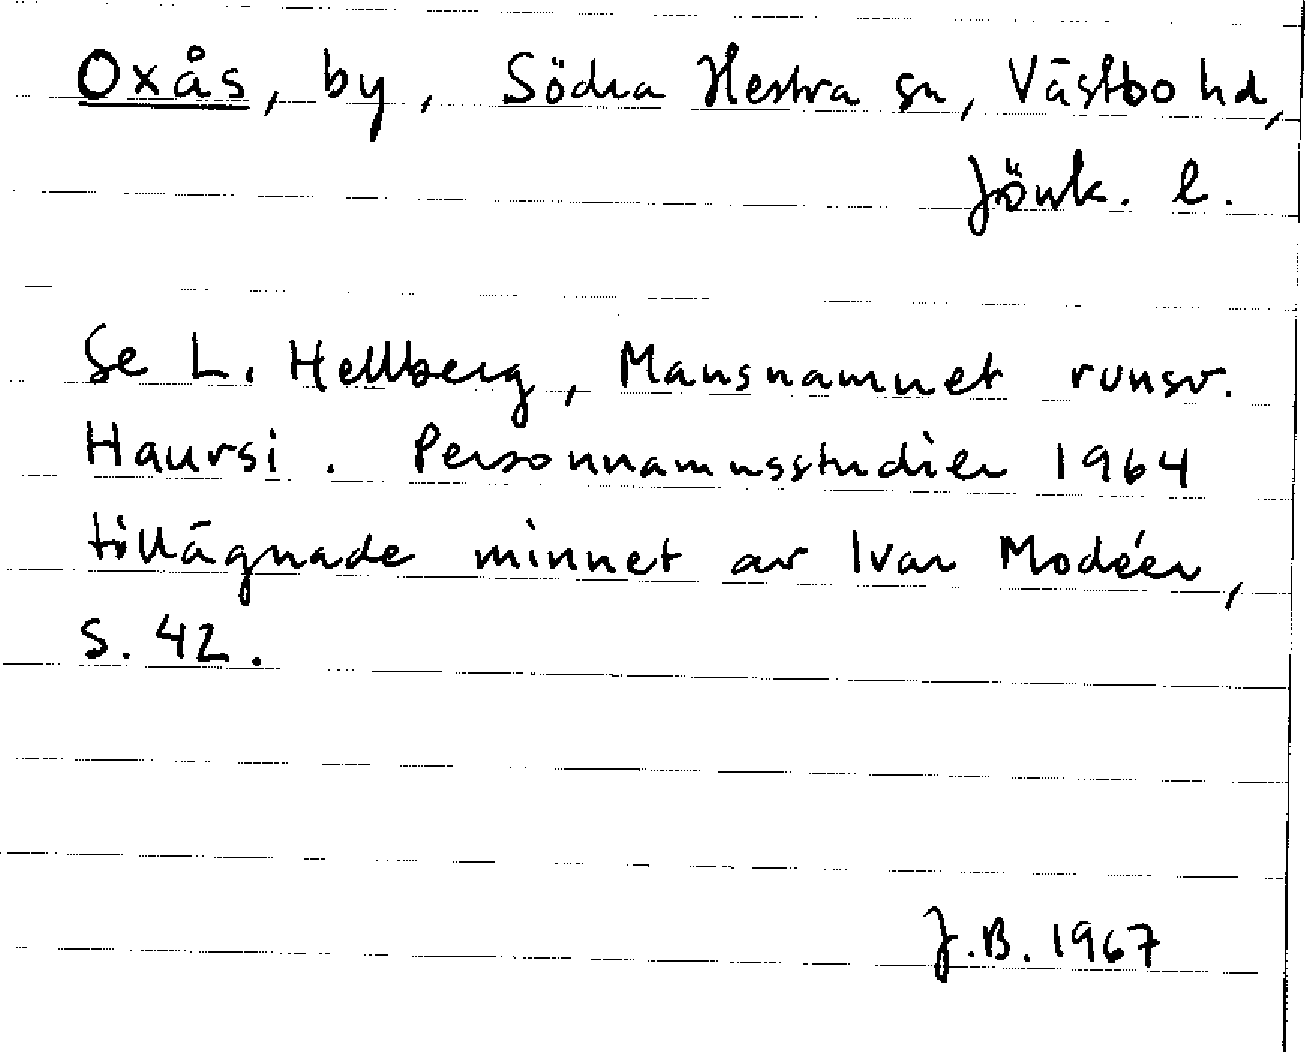 Oxås, by, Södra Hestra sn, Västbo hd,
Jönk. l.
Se L. Hellberg, Mansnamnet runsv.
Haursi. Personnamnsstudier 1964
tillägnade minnet av Ivar Modéer,
s. 42.
J.B. 1967